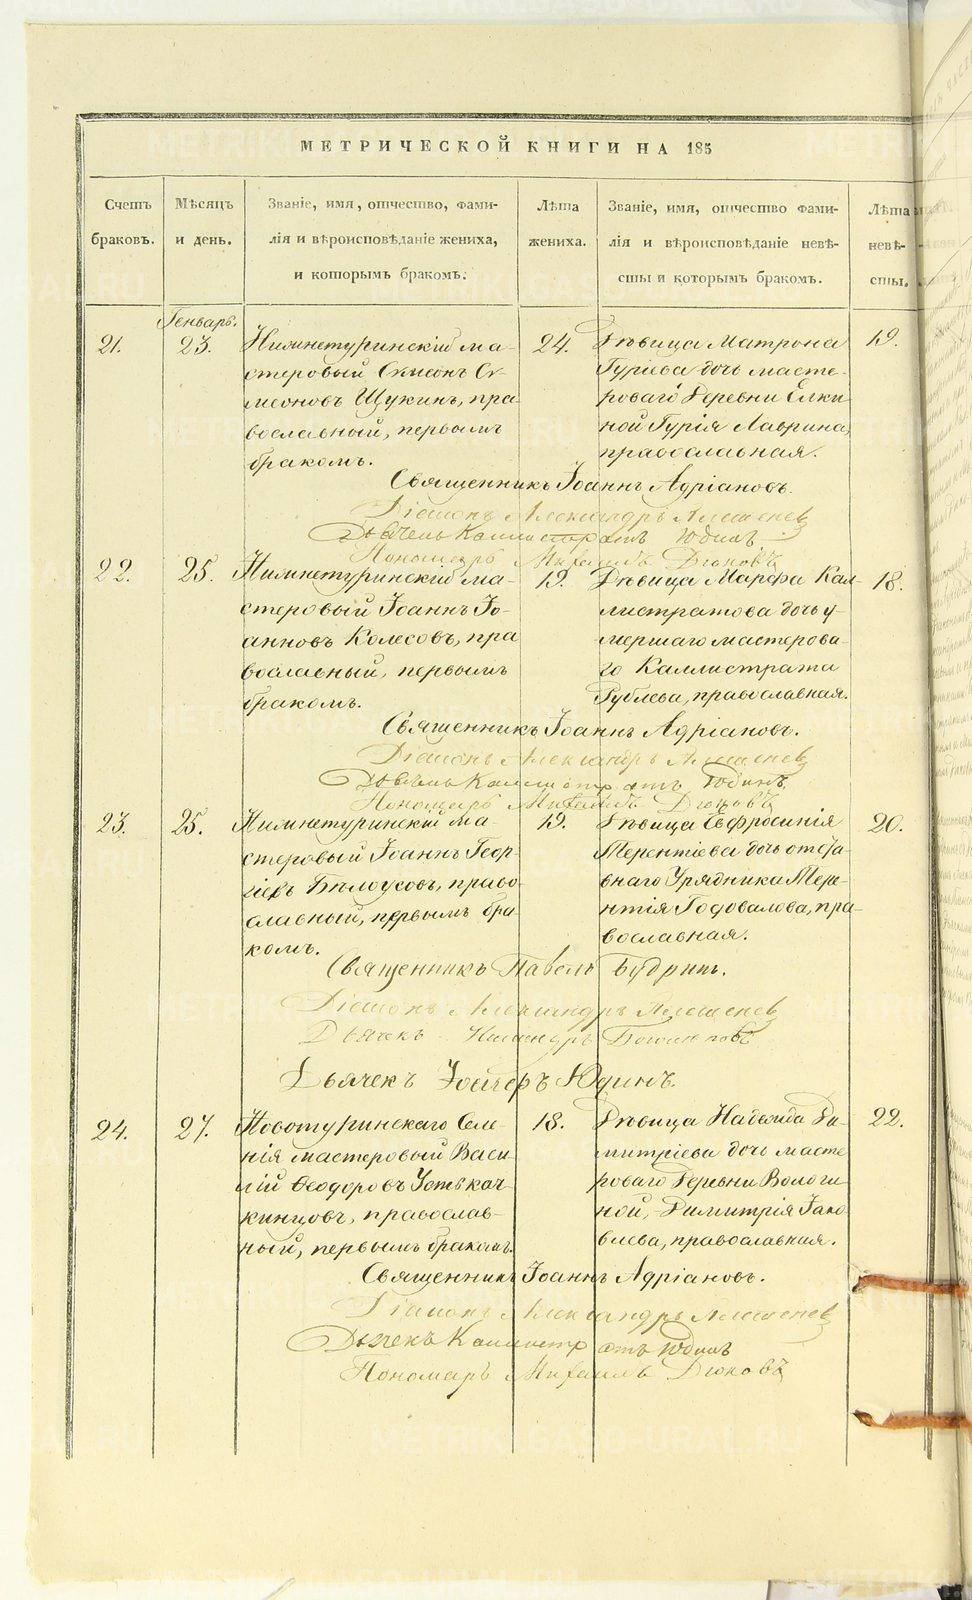 МЕТРИЧЕСКОЙ КНИГИ НА 185
Счетъ браковъ.
Мѣсяцъ и день.
Званіе, имя, отчество, фами-
лія и вѣроисповѣданіе жениха,
и которымъ бракомъ.
Лѣта жениха.
Званіе, имя, отчество фами-
лія и вѣроисповѣданіе невѣ-
сты и которымъ бракомъ.
Лѣта невѣ-
сты.
Генварь.
21.
23.
Нижнетуринскій ма-
стеровый Симеонъ Си-
меоновъ Щукинъ, пра
вославный, первымъ
бракомъ.
24.
Дѣвица Матрона
Гуріева дочь масте-
роваго деревни Елки
ной Гурія Лаврина,
православная.
19.
Священникъ Іоаннъ Адріановъ.
Діаконъ Александръ
Дьячекъ Каллистратъ Юдинъ
Пономарь Михаилъ Дюковъ
22.
25.
Нижнетуринскій ма-
стеровый Іоаннъ Іо-
анновъ Колесовъ, пра
вославный, первымъ
бракомъ.
19.
Дѣвица Марфа Кал-
листратова дочь у-
мершаго мастерова-
го Каллистрата
Рублева, православная.
18.
Священникъ Іоаннъ Адріановъ.
Діаконъ Александръ
Дьячекъ Каллистратъ Юдинъ.
Пономарь Михаилъ Дюковъ
23.
25.
Нижнетуринскій ма-
стеровый Іоаннъ Геор-
гіевъ Бѣлоусовъ, право-
славный, первымъ бра-
комъ.
19.
Дѣвица Евфросинія
Терентіева дочь отста-
внаго Урядника Тере-
нтія Годовалова, пра-
вославная.
20.
Священникъ Павелъ Будринъ.
Діаконъ Александръ
Дьячекъ
Дьячекъ Юдинъ.
24.
27.
Новотуринскаго Селе-
нія мастеровый Васи-
лій Ѳеодоровъ Устькач-
кинцовъ, православ-
ный, первымъ бракомъ.
18.
Дѣвица Надежда Ди-
митріева дочь масте
роваго деревни Вологи
ной, Димитрія Яко-
влева, православная.
22.
Священникъ Іоаннъ Адріановъ.
Діаконъ Александръ
Дьячекъ Каллистратъ Юдинъ
Пономарь Михаилъ Дюковъ